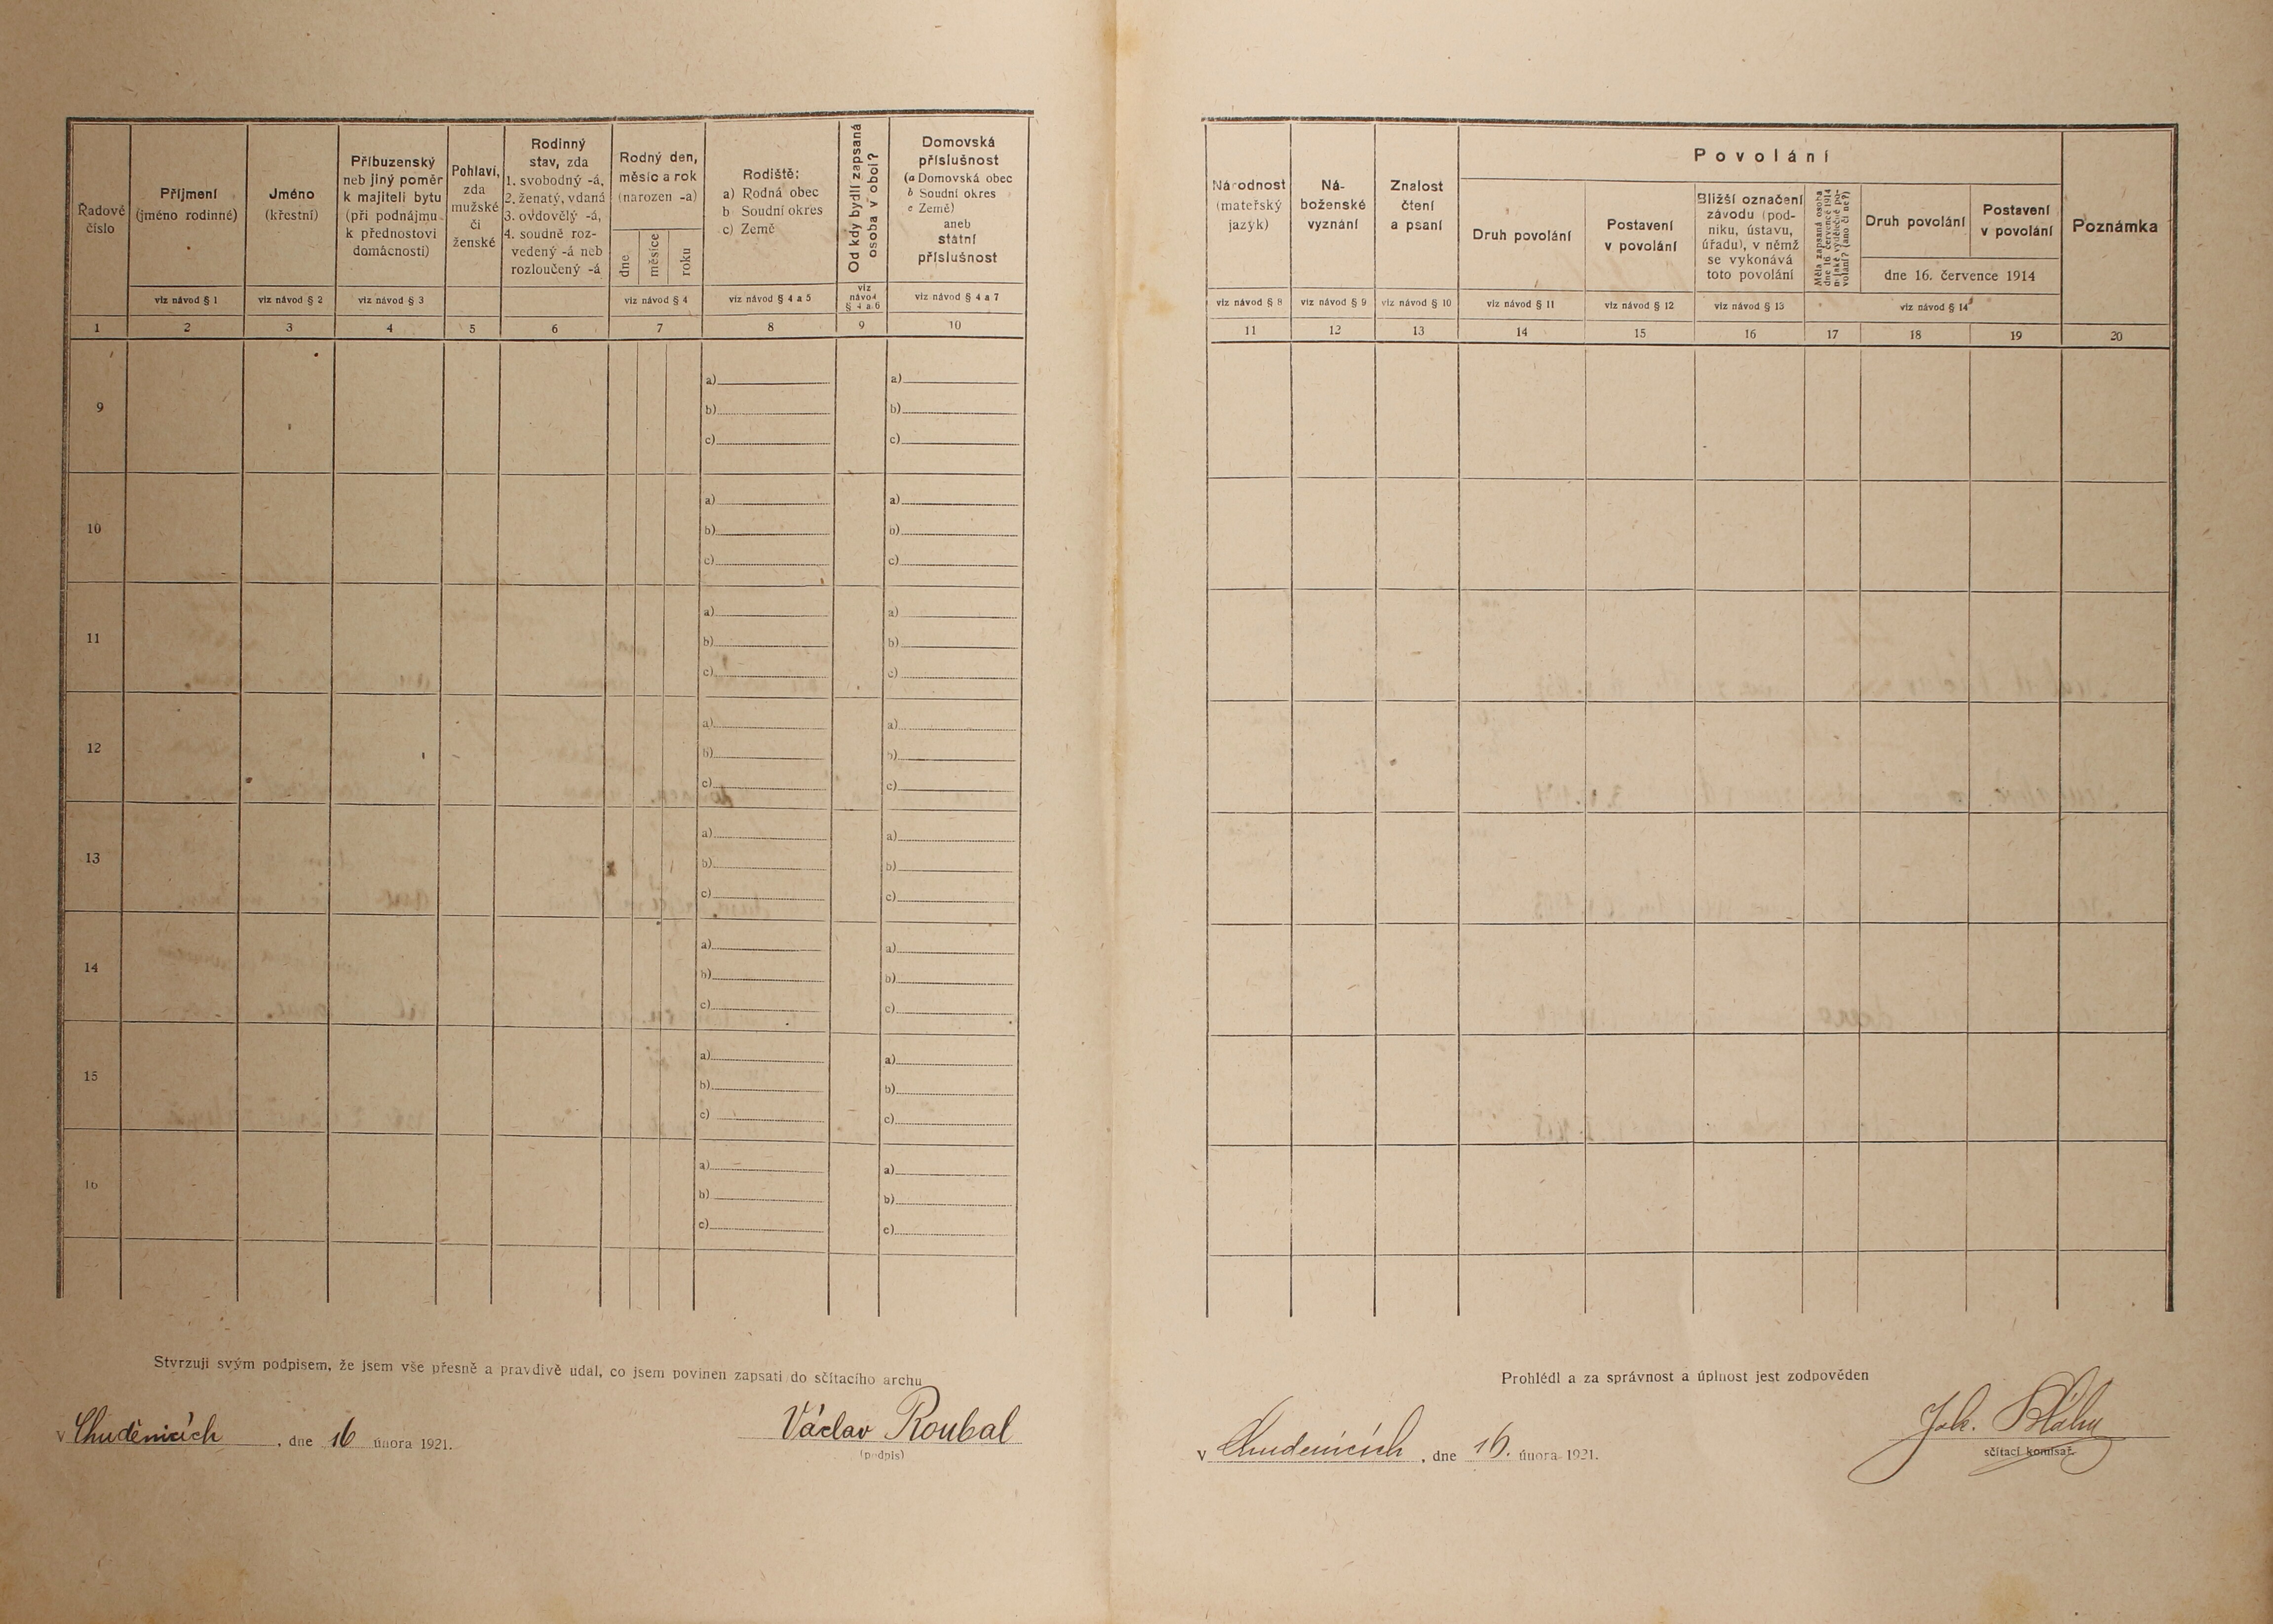 Řadové číslo
Příjmení
(jméno rodinné)
viz návod § 1
Jméno
(křestní)
viz návod § 2
Příbuzenský
neb jiný poměr
k majiteli bytu
(při podnájmu
k přednostovi
domácnosti)
viz návod § 3
Pohlaví,
zda
mužské
či
ženské
Rodinný
stav, zda
1. svobodný -á,
2. ženatý, vdaná
3. ovdovělý -á,
4. soudně roz-
vedený -á neb
rozloučený -á
Rodný den,
měsíc a rok
(narozen -a)
dne
měsíce
roku
viz návod § 4
Rodiště:
a) Rodná obec
b Soudní okres
c) Země
viz návod § 4 a 5
Od kdy bydlí zapsaná
osoba v obci?
viz
návod
§ 4 a 6
Domovská
příslušnost
(a Domovská obec
b Soudní okres
c Země)
aneb
státní
příslušnost
viz návod § 4 a 7
1 2 3 4 5 6 7 8 9 10
9
a) a)
b) b)
c) c)
10
a) a)
b) b)
c) c)
11
a) a)
b) b)
c) c)
12
a) a)
b) b)
c) c)
13
a) a)
b) b)
c) c)
14
a) a)
b) b)
c) c)
15
a) a)
b) b)
c) c)
16
a) a)
b) b)
c) c)
Stvrzuji svým podpisem, že jsem vše přesně a pravdivě udal, co jsem povinen zapsati do sčítacího archu
v Chuděnicích, dne 16 února 1921.
Václav Roubal
(podpis)
Národnost
(mateřský
jazyk)
viz návod § 8
Ná-
boženské
vyznání
viz návod § 9
Znalost
čtení
a psaní
viz návod § 10
Povolání
Druh povolání
viz návod § 11
Postavení
v povolání
viz návod § 12
Bližší označení
závodu (pod-
niku, ústavu,
úřadu), v němž
se vykonává
toto povolání
viz návod § 13
Měla zapsaná osoba
dne 16. července 1914
nějaké výdělečné po-
volání? (ano či ne?)
Druh povolání
Postavení
v povolání
dne 16. července 1914
viz návod § 14
Poznámka
11 12 13 14 15 16 17 18 19 20
Prohlédl a za správnost a úplnost jest zodpověden
v Chudenicích, dne 16. února 1921.
Joh. Bláha
sčítací komisař.